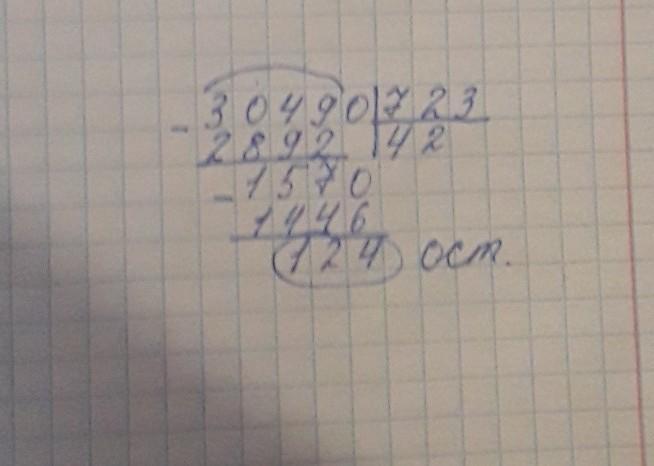 - 30490 | 723
2892 | 42
- 1570
1446
124 ост.